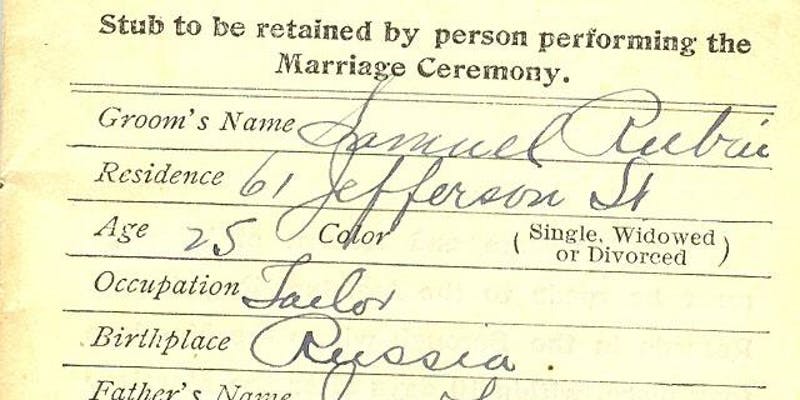 Stub to be retained by person performing the
Marriage Ceremony.
Groom's Name Samuel Rubin
Residence 61 Jefferson St
Age 25 Color (Single, Widowed or Divorced)
Occupation Tailor
Birthplace Russia
Father's Name